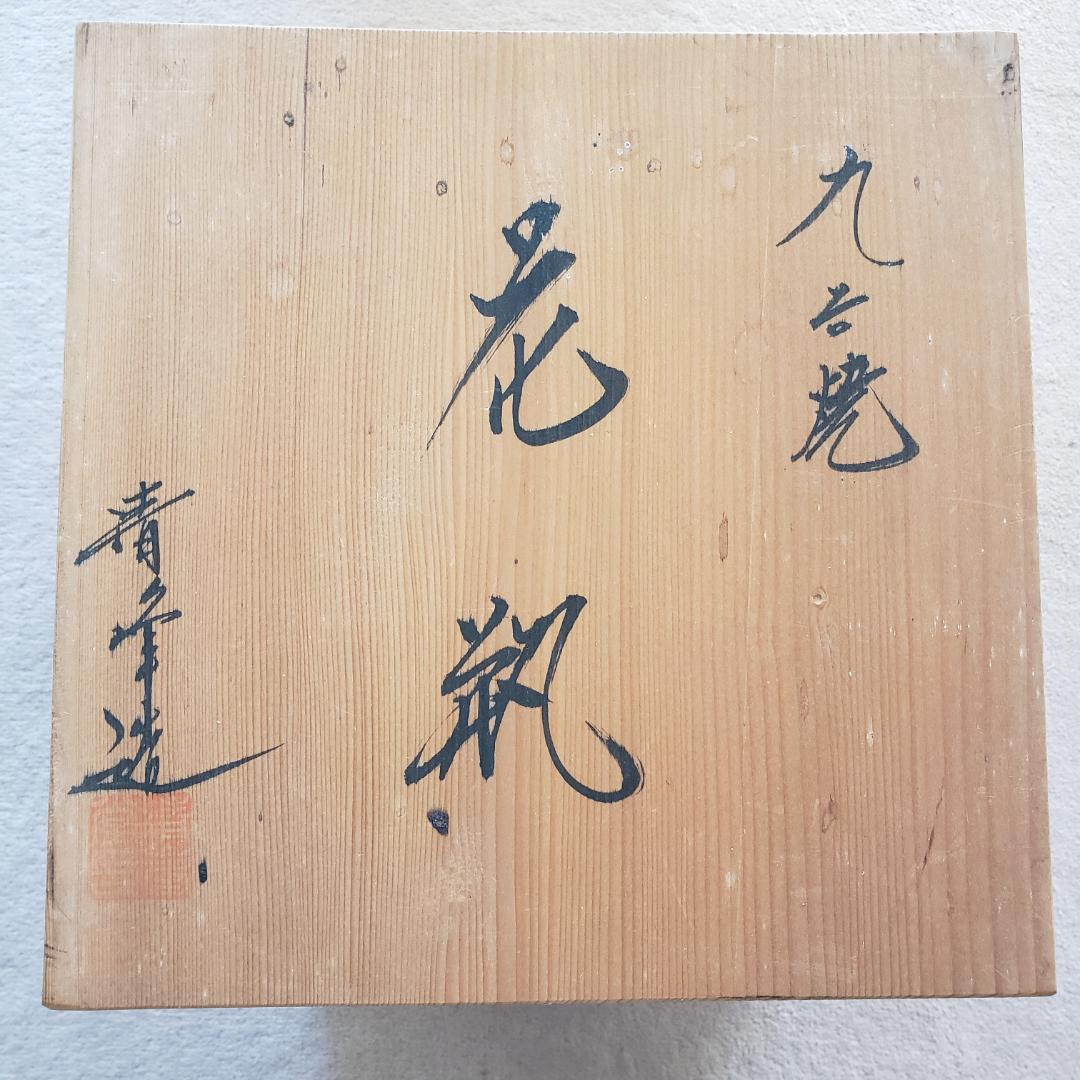 九谷焼
花瓶
青峯造